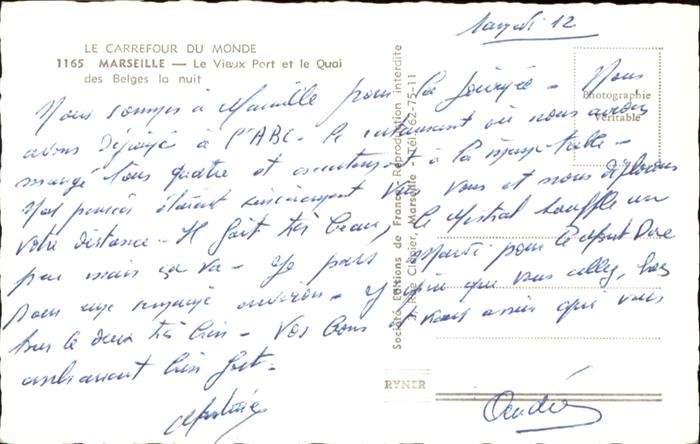 Samedi 12
LE CARREFOUR DU MONDE
1165 MARSEILLE — Le Vieux Port et le Quai
des Belges la nuit
Photographie
Véritable
Société Editions de France, Reproduction interdite
Rue Clapier, Marselle Tél. 62-75-11
Nous sommes à Marseille pour la journée - Nous
avons déjeuné à l'ABC - le restaurant où nous avons
mangé tous quatre et à la même table -
Nos pensées étaient sincèrement vers vous et nous déplorons
votre distance - Il fait très beau, le Mistral souffle un
peu mais ça va - Je pars mardi pour le Mont Dore
pour une semaine environ - J'espère que vous allez, tous
tous les deux très bien - Vos vous qui vous
embrassent bien fort -
RYNER
André